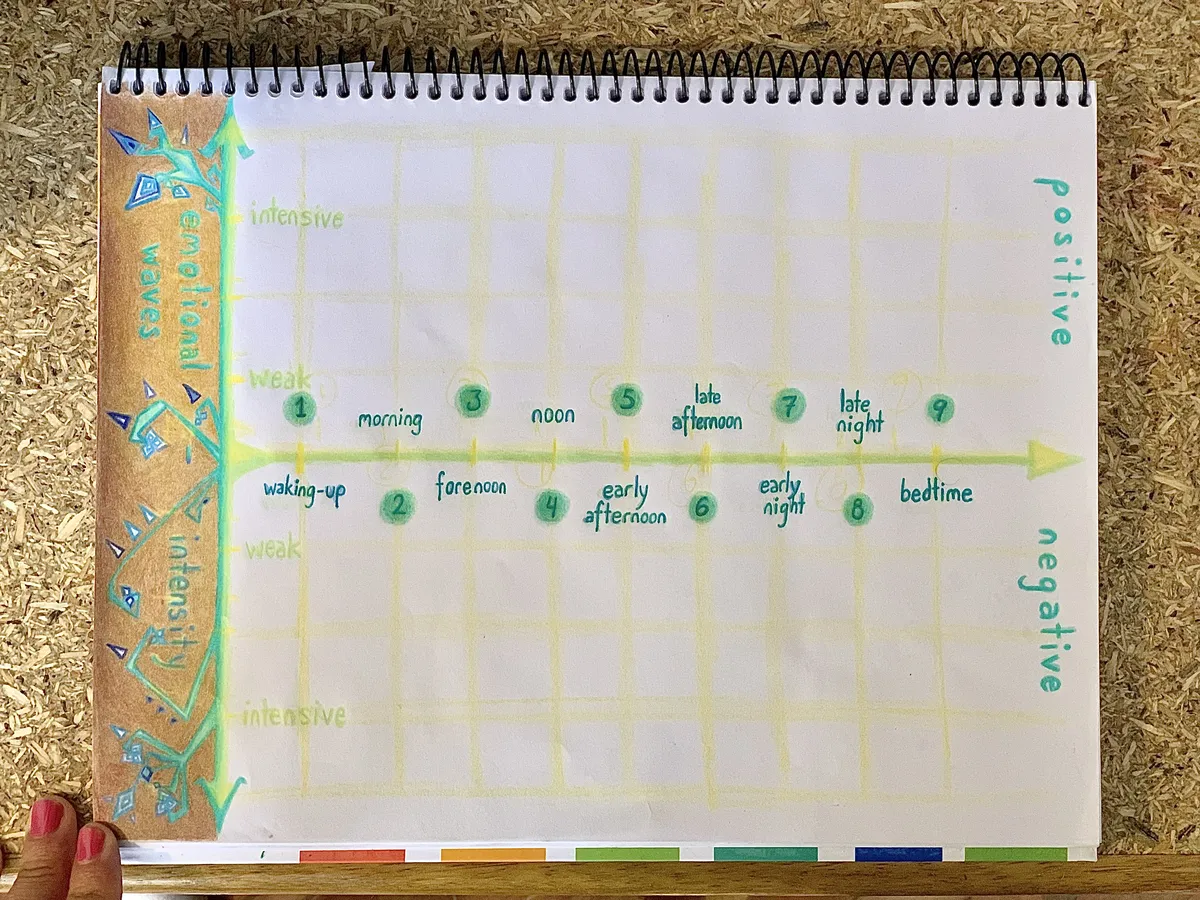 emotional
waves
intensity
positive
intensive
weak
1
waking-up
morning
2
3
forenoon
noon
4
5
early
afternoon
late
afternoon
6
7
early
night
late
night
8
9
bedtime
weak
intensive
negative